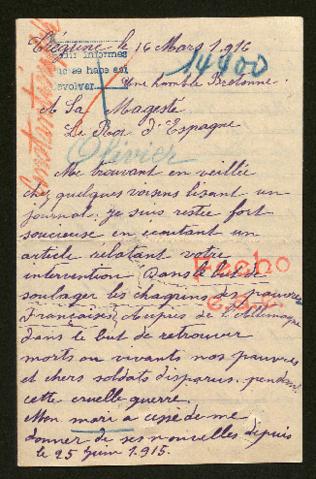 Trégunc le 16 Mars 1916
informes
que se hace así
devolver
14400
Une humble Bretonne.
A Sa Magesté
Le Roi d'Espagne
Olivier
Me trouvant en veillée
chez quelques voisins lisant un
journal, je suis restée fort
soucieuse en écoutant un
article relatant votre
intervention Dans le but de
soulager les chagrins des pauvres
Françaises Auprès de l'Allemagne
Fecho
dans le but de retrouver
morts ou vivants nos pauvres
et chers soldats disparus pendant
cette cruelle guerre.
Mon mari a cessé de me
donner de ses nouvelles depuis
le 25 Juin 1915.